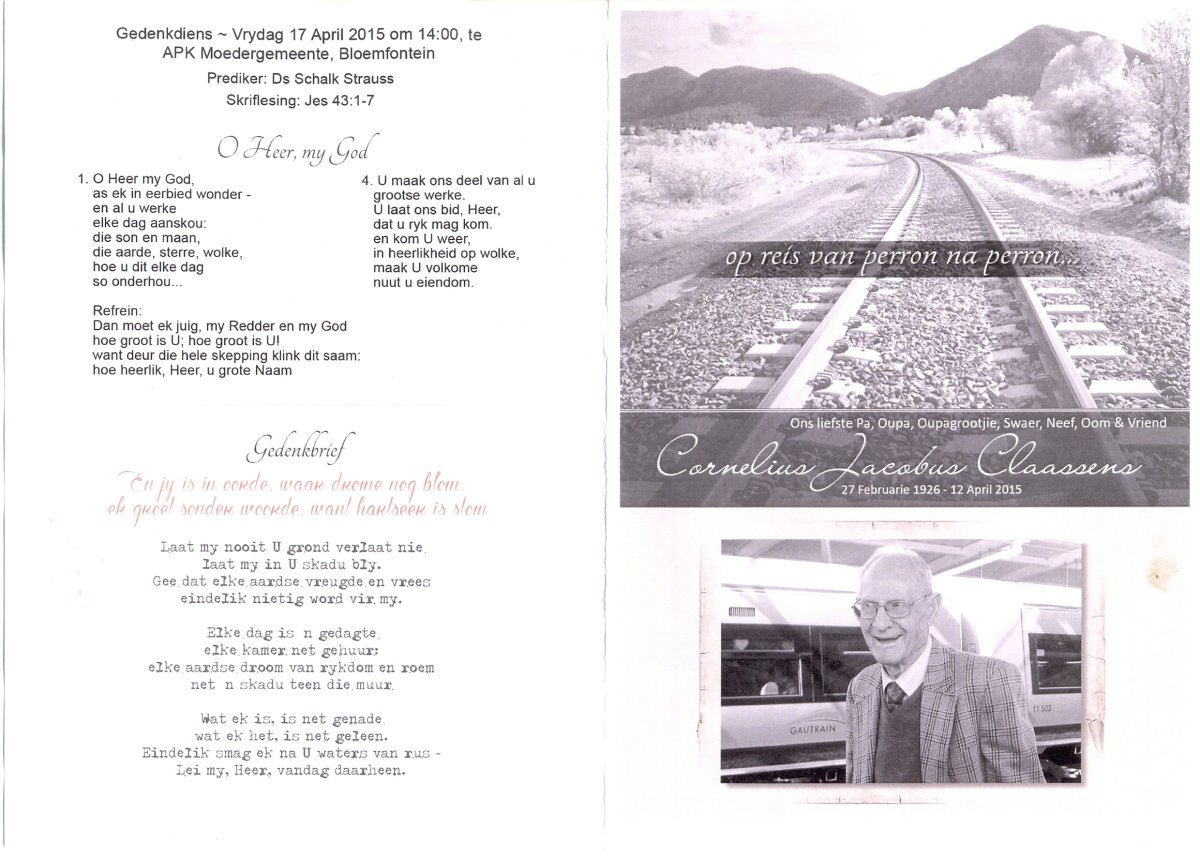 Gedenkdiens ~ Vrydag 17 April 2015 om 14:00, te
APK Moedergemeente, Bloemfontein
Prediker: Ds Schalk Strauss
Skriflesing: Jes 43:1-7
O Heer, my God
1. O Heer my God,
as ek in eerbied wonder -
en al u werke
elke dag aanskou:
die son en maan,
die aarde, sterre, wolke,
hoe u dit elke dag
so onderhou...
4. U maak ons deel van al u
grootse werke.
U laat ons bid, Heer,
dat u ryk mag kom.
en kom U weer,
in heerlikheid op wolke,
maak U volkome
nuut u eiendom.
Refrein:
Dan moet ek juig, my Redder en my God
hoe groot is U; hoe groot is U!
want deur die hele skepping klink dit saam:
hoe heerlik, Heer, u grote Naam
Gedenkbrief
En jy is in oorde, waar drome nog blom,
ek groet sonder woorde, want hartseer is stom
Laat my nooit U grond verlaat nie,
laat my in U skadu bly.
Gee dat elke aardse vreugde en vrees
eindelik nietig word vir my.
Elke dag is n gedagte,
elke kamer net gehuur;
elke aardse droom van rykdom en roem
net n skadu teen die muur.
Wat ek is, is net genade,
wat ek het, is net geleen.
Eindelik smag ek na U waters van rus -
Lei my, Heer, vandag daarheen.
op reis van perron na perron...
Ons liefste Pa, Oupa, Oupagrootjie, Swaer, Neef, Oom & Vriend
Cornelius Jacobus Claassens
27 Februarie 1926 - 12 April 2015
GAUTRAIN
11 503